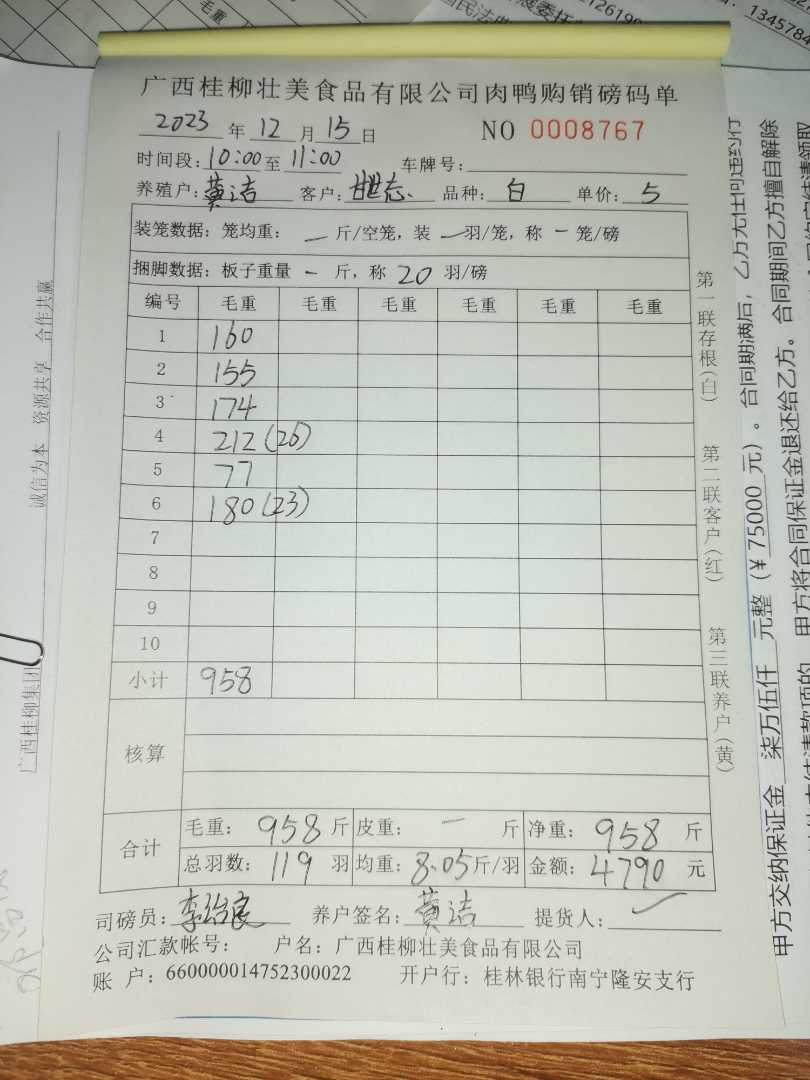 广西桂柳壮美食品有限公司肉鸭购销磅码单
2023 年 12 月 15 日 NO 0008767
时间段: 10:00 至 11:00 车牌号:
养殖户: 黄洁 客户: 甘世志 品种: 白 单价: 5
装笼数据: 笼均重: — 斤/空笼, 装 — 羽/笼, 称 — 笼/磅
捆脚数据: 板子重量 — 斤, 称 20 羽/磅
编号 毛重 毛重 毛重 毛重 毛重 毛重
1 160
2 155
3 174
4 212 (26)
5 77
6 180 (23)
7
8
9
10
小计 958
核算
合计
毛重: 958 斤 皮重: — 斤 净重: 958 斤
总羽数: 119 羽 均重: 8.05 斤/羽 金额: 4790 元
司磅员: 李治良 养户签名: 黄洁 提货人:
公司汇款帐号: 户名: 广西桂柳壮美食品有限公司
账 户: 660000014752300022 开户行: 桂林银行南宁隆安支行
第一联存根(白) 第二联客户(红) 第三联养户(黄)
诚信为本 资源共享 合作共赢
广西桂柳集团
甲方交纳保证金 柒万伍仟 元整 (¥ 75000 元)。合同期满后, 乙方无任何违约行
甲方将合同保证金退还给乙方。合同期间乙方擅自解除
毛重